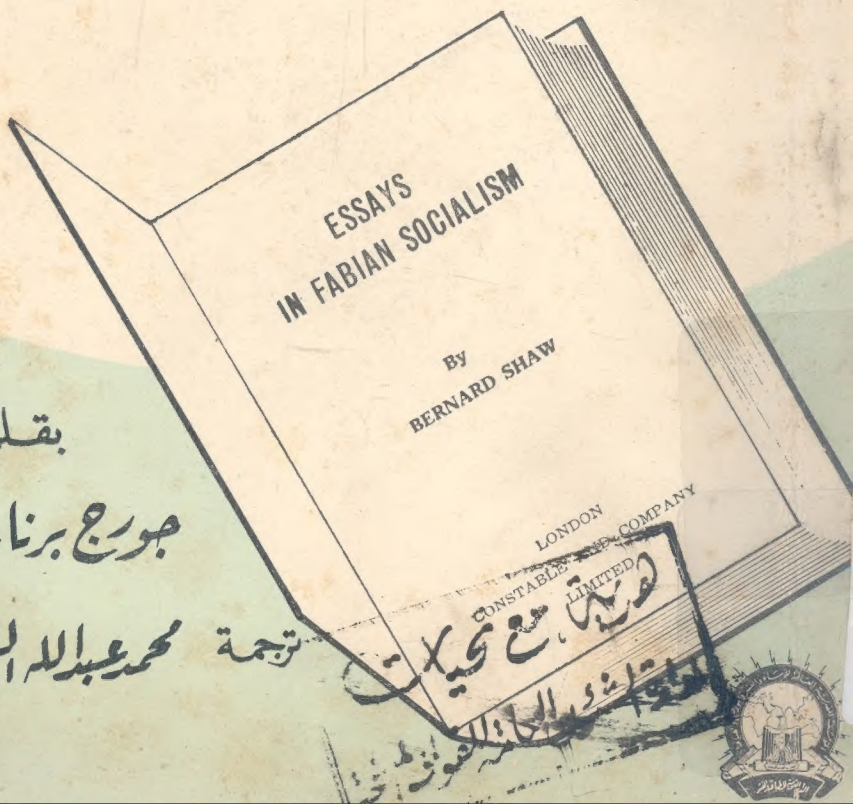 ESSAYS
IN FABIAN SOCIALISM
By
BERNARD SHAW
LONDON
CONSTABLE AND COMPANY
LIMITED
جورج
ترجمة محمد عبدالله
هدية مع تحيات